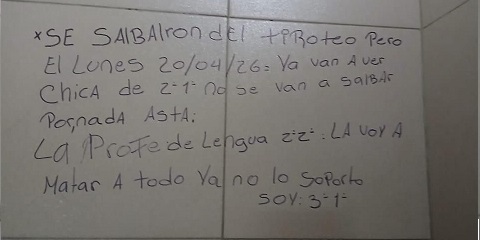 *SE SAlBAlron dEl tPRoteo Pero
El Lunes 20/04/26: Ya van A ver
ChicA de 2º1º no Se van a SalBAr
AstA:
La Profe de Lengua 2º2º: LA voy A
Matar A todo Ya no lo Soporto
SOY: 3º1º